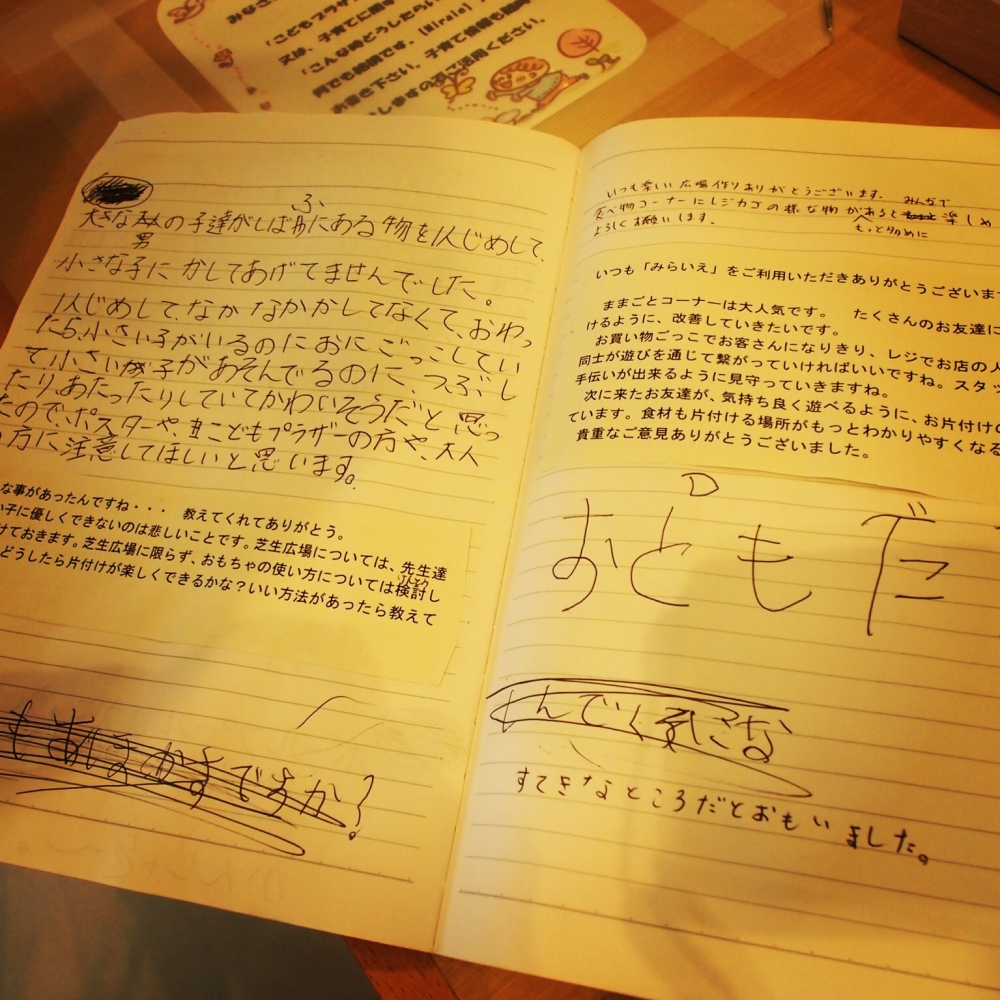 みなさ
「こどもプラザ
又は、子育てに関す
「こんな時どうしたらい
何でも結構です。「Miraie」
お書き下さい。子育て情報も
しますの
ご活用ください。
ふ
大きな の子達がしば にある物を1人じめして、
男
小さな子に かしてあげてませんでした。
1人じめして、なか なかかしてなくて、おわっ
たら、小さい子がいるのにおにごっこしてい
て小さい 子があそんでるのに、つぶし
たり、あたったりしていてかわいそうだと思っ
たので、ポスターや、 こどもプラザーの方や、大人
の方に注意してほしいと思います。
な事があったんですね・・・ 教えてくれてありがとう。
い子に優しくできないのは悲しいことです。芝生広場については、先生達
けておきます。芝生広場に限らず、おもちゃの使い方については検討し
けんとう
どうしたら片付けが楽しくできるかな？いい方法があったら教えて
ですか？
いつも楽しい広場作りありがとうございます。
みんなで
食べ物コーナーにレジカゴの様な物が あると 楽しめ
もっと多めに
よろしくお願いします。
いつも「みらいえ」をご利用いただきありがとうございま
ままごとコーナーは大人気です。 たくさんのお友達に
けるように、改善していきたいです。
お買い物ごっこでお客さんになりきり、レジでお店の人
同士が遊びを通じて繋がっていければいいですね。スタッ
手伝いが出来るように見守っていきますね。
次に来たお友達が、気持ち良く遊べるように、お片付けの
ています。食材も片付ける場所がもっとわかりやすくなる
貴重なご意見ありがとうございました。
おともだ
んでく気にな
すてきなところだとおもいました。